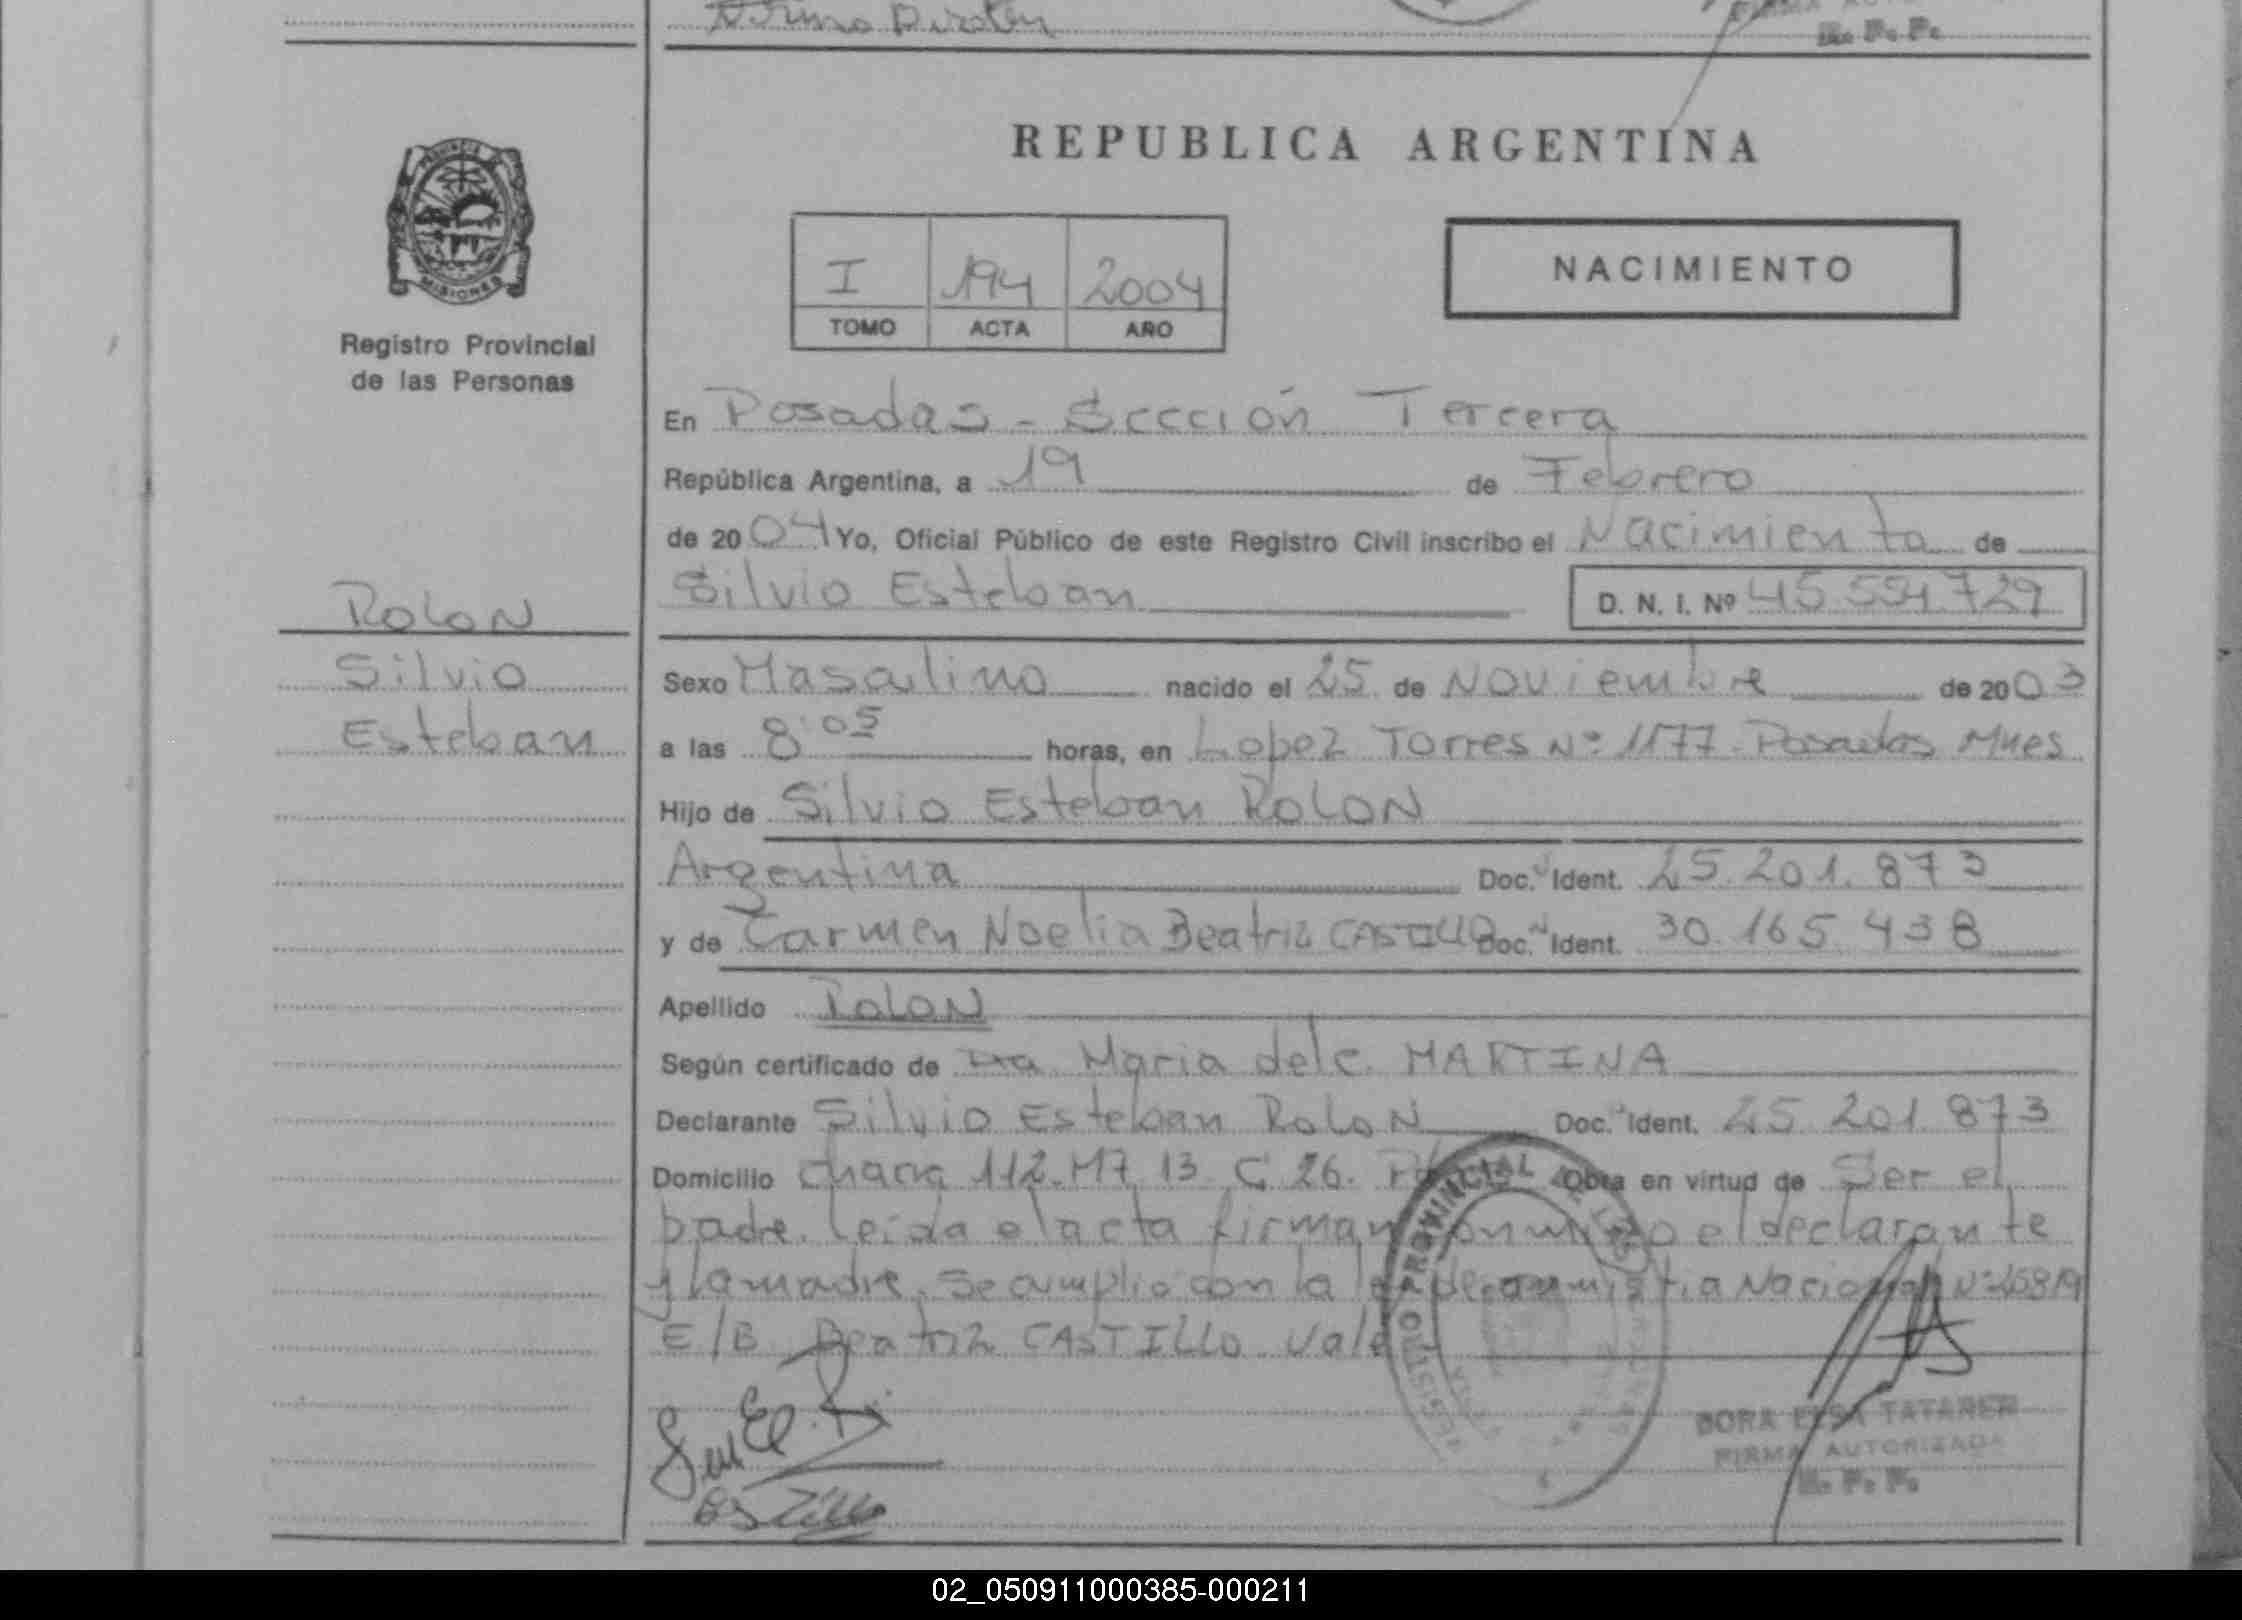 R. P. P.
PROVINCIA DE
MISIONES
Registro Provincial
de las Personas
REPUBLICA ARGENTINA
I 194 2004
TOMO ACTA AÑO
NACIMIENTO
En Posadas - Sección Tercera
República Argentina, a 19 de Febrero
de 2004 Yo, Oficial Público de este Registro Civil inscribo el Nacimiento de
Silvio Esteban D. N. I. Nº 45.554.729
ROLON
Silvio
Esteban
Sexo Masculino nacido el 25 de Noviembre de 2003
a las 8:05 horas, en Lopez Torres Nº 1177 Posadas Mnes
Hijo de Silvio Esteban ROLON
Argentina Doc. Ident. 25.201.873
y de Carmen Noelia Beatriz CASTILLO Doc. Ident. 30.165.438
Apellido ROLON
Según certificado de Dra Maria del C. MARTINA
Declarante Silvio Esteban ROLON Doc. Ident. 25.201.873
Domicilio Chacra 112. Mz 13. C 26. Obra en virtud de Ser el
padre. Leida el acta firman conmigo el declarante
y la madre. Se cumplio con la ley de amnistia Nacional Nº 25819
E/B Beatriz CASTILLO Vale
REGISTRO PROVINCIAL DE LAS PERSONAS
DORA ELSA TATAREN
FIRMA AUTORIZADA
R. P. P.
02_050911000385-000211